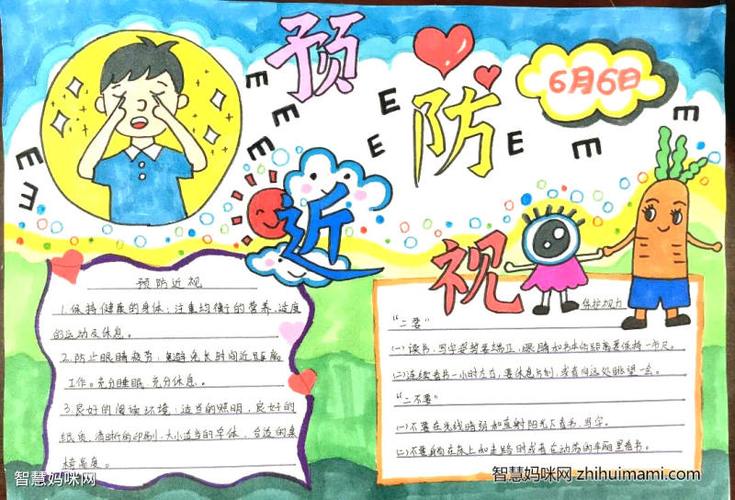 预防近视
6月6日
E E E E E E E E E E E
预防近视
1.保持健康的身体,注重均衡的营养、适度
的运动及休息。
2.防止眼睛疲劳:避免长时间近距离
工作。充分睡眠、充分休息。
3.良好的阅读环境:适当的照明,良好的
纸质、清晰的印刷、大小适当的字体,合适的桌
椅高度。
保护视力
“二要”
(一)读书、写字姿势要端正,眼睛和书本的距离要保持一市尺。
(二)连续看书一小时左右,要休息片刻,或者向远处眺望一会。
“二不要”
(一)不要在光线暗弱和直射阳光下看书、写字。
(二)不要躺在床上和走路时或者在动荡的车厢里看书。
智慧妈咪网
智慧妈咪网 zhihuimami.com